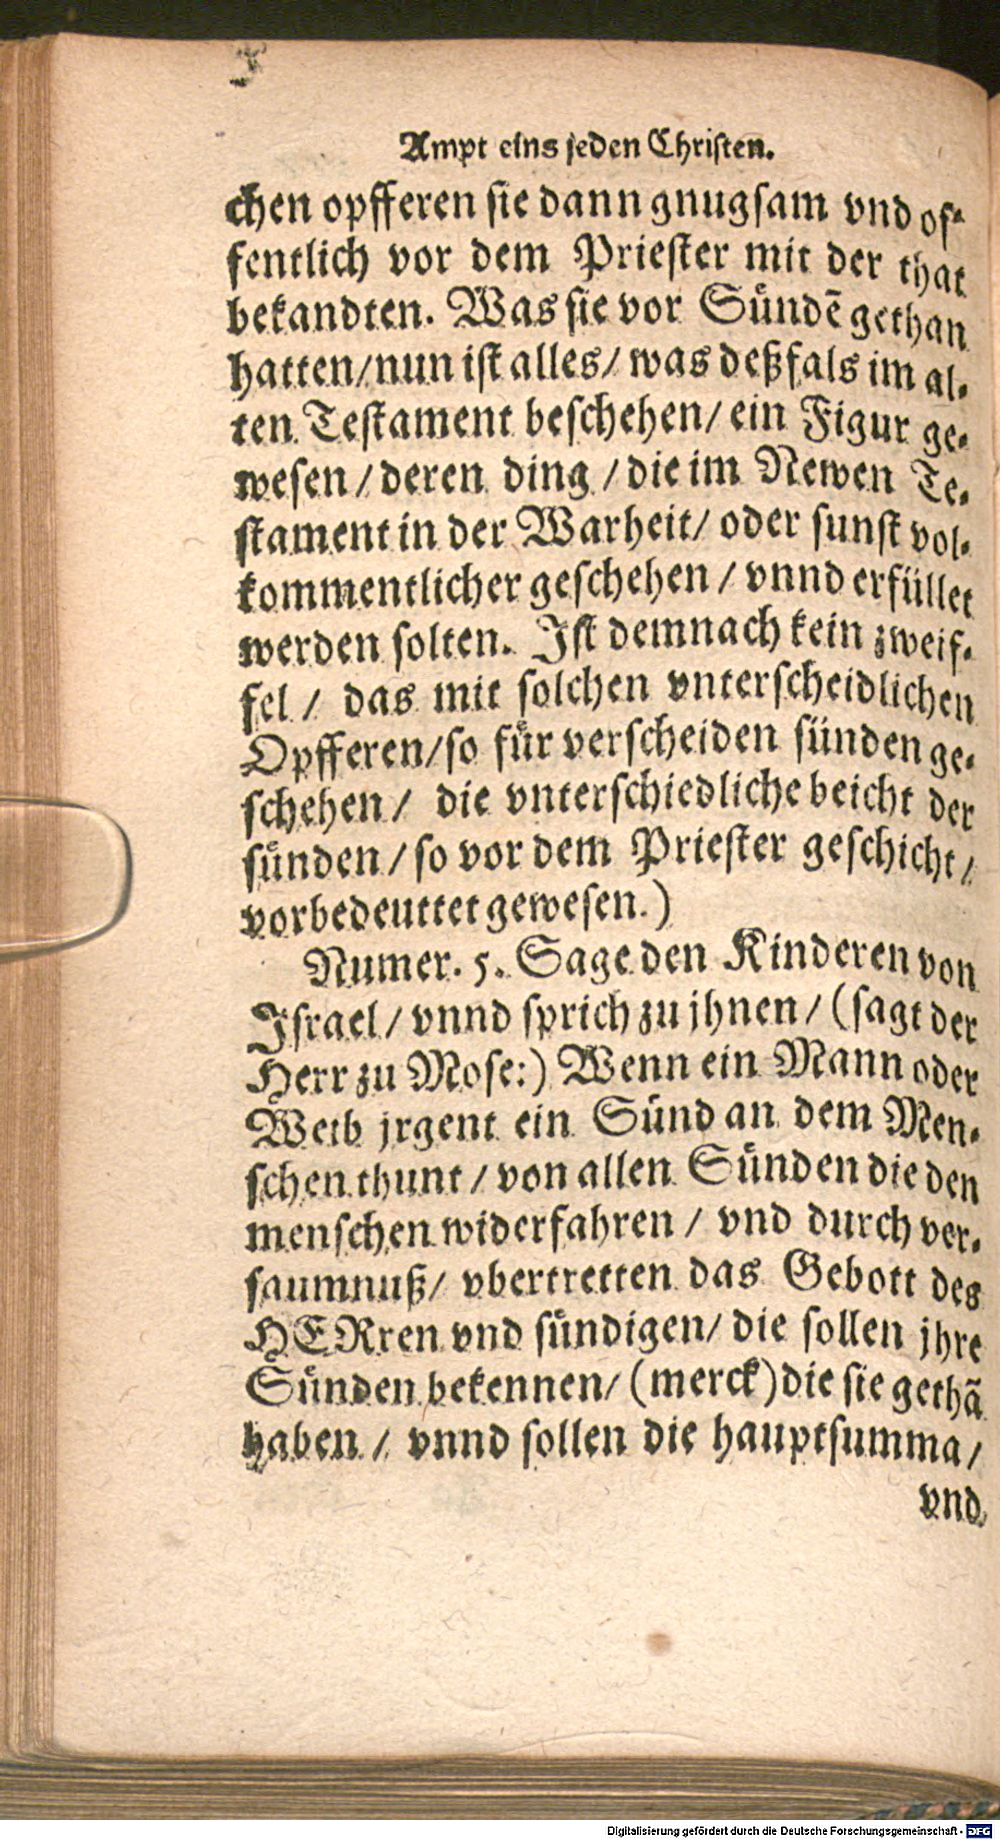 Ampt eins jeden Christen.
chen opfferen sie dann gnugsam vnd of-
fentlich vor dem Priester mit der that
bekandten. Was sie vor Sündẽ gethan
hatten/nun ist alles/ was deßfals im al-
ten Testament beschehen/ ein Figur ge-
wesen / deren ding / die im Newen Te-
stament in der Warheit/ oder sunst vol-
kommentlicher geschehen / vnnd erfüllet
werden solten. Ist demnach kein zweif-
fel / das mit solchen vnterscheidlichen
Opfferen/so für verscheiden sünden ge-
schehen/ die vnterschiedliche beicht der
sünden / so vor dem Priester geschicht /
vorbedeuttet gewesen.)
Numer. 5. Sage den Kinderen von
Israel / vnnd sprich zu jhnen / (sagt der
Herr zu Mose:) Wenn ein Mann oder
Weib jrgent ein Sünd an dem Men-
schen thunt / von allen Sünden die den
menschen widerfahren / vnd durch ver-
saumnuß/ vbertretten das Gebott des
HERren vnd sündigen/ die sollen jhre
Sünden bekennen/ (merck) die sie gethã
haben / vnnd sollen die hauptsumma /
vnd
Digitalisierung gefördert durch die Deutsche Forschungsgemeinschaft - DFG